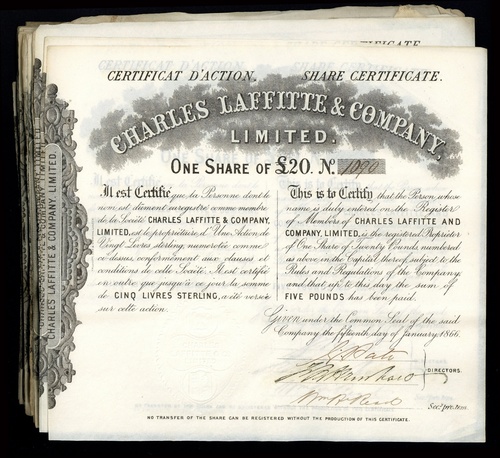 CERTIFICAT D'ACTION. SHARE CERTIFICATE.
CHARLES LAFFITTE & COMPANY,
LIMITED.
ONE SHARE OF £20. No. 1090
Il est Certifié que la Personne dont le
nom est dûment enregistré comme membre
de la Société CHARLES LAFFITTE & COMPANY,
LIMITED, est le propriétaire d'Une Action de
Vingt Livres sterling, numérotée comme
ci-dessus, conformément aux clauses et
conditions de cette Société. Il est certifié
en outre que jusqu'à ce jour la somme
de CINQ LIVRES STERLING, a été versée
sur cette action.
This is to Certify that the Person, whose
name is duly entered on the Register
of Members of CHARLES LAFFITTE AND
COMPANY, LIMITED, is the registered Proprietor
of One Share of Twenty Pounds, numbered
as above in the Capital thereof, subject to the
Rules and Regulations of the Company;
and that up to this day the sum of
FIVE POUNDS has been paid.
Given under the Common Seal of the said
Company the fifteenth day of January, 1866.
DIRECTORS.
Secy. pro: tem:
NO TRANSFER OF THE SHARE CAN BE REGISTERED WITHOUT THE PRODUCTION OF THIS CERTIFICATE.
CHARLES LAFFITTE & COMPANY, LIMITED.